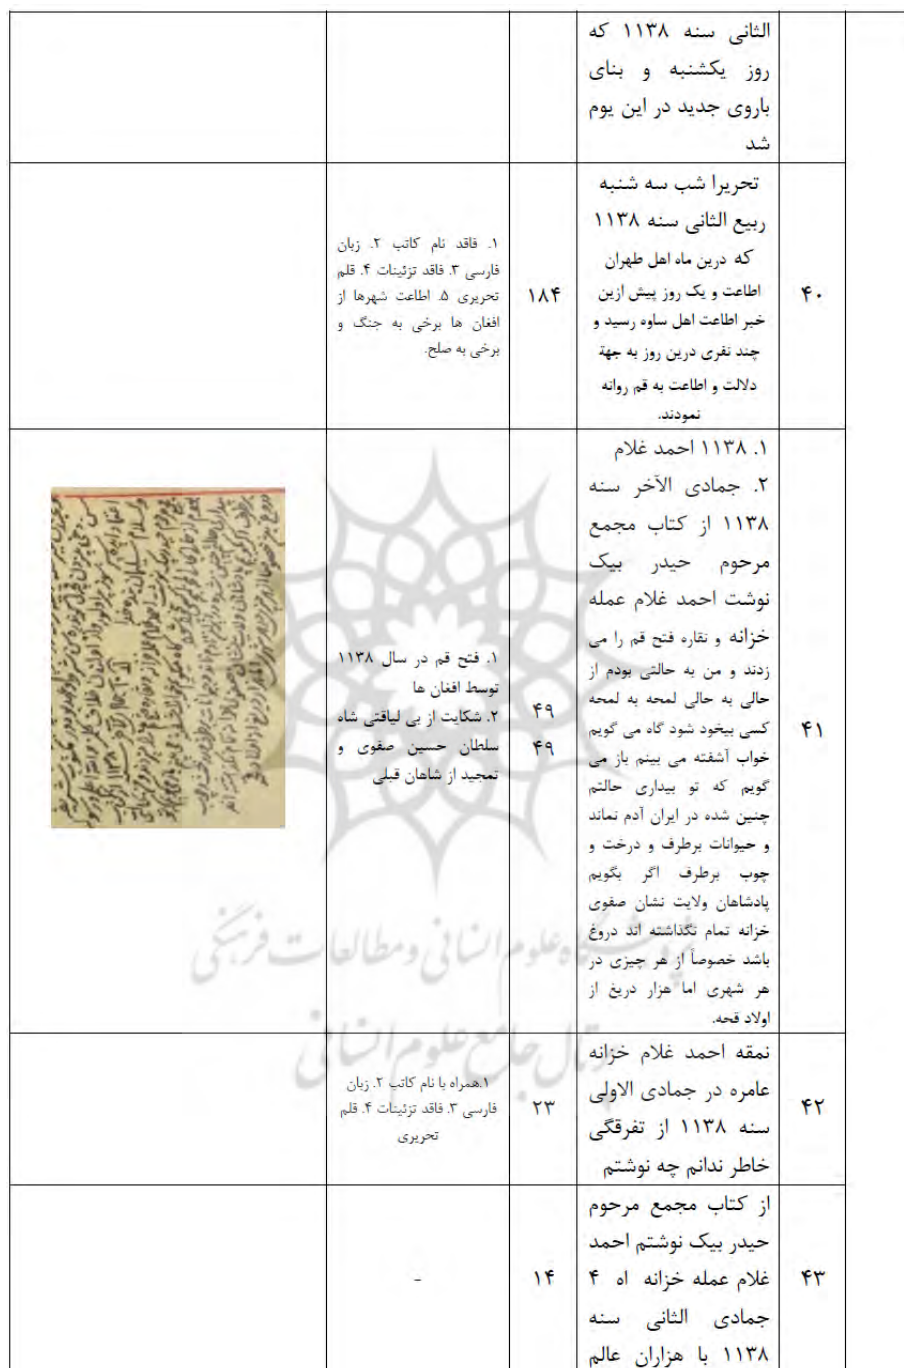 الثانی سنه ۱۱۳۸ که
روز یکشنبه و بنای
باروی جدید در این یوم
شد
۴۰
تحریرا شب سه شنبه
ربیع الثانی سنه ۱۱۳۸
که درین ماه اهل طهران
اطاعت و یک روز پیش ازین
خبر اطاعت اهل ساوه رسید و
چند نفری درین روز به جهة
دلالت و اطاعت به قم روانه
نمودند.
۱۸۴
۱. فاقد نام کاتب ۲. زبان
فارسی ۳. فاقد تزئینات ۴. قلم
تحریری ۵. اطاعت شهرها از
افغان ها برخی به جنگ و
برخی به صلح.
۴۱
۱. ۱۱۳۸ احمد غلام
۲. جمادی الآخر سنه
۱۱۳۸ از کتاب مجمع
مرحوم حیدر بیک
نوشت احمد غلام عمله
خزانه و نقاره فتح قم را می
زدند و من به حالتی بودم از
حالی به حالی لمحه به لمحه
کسی بیخود شود گاه می گویم
خواب آشفته می بینم باز می
گویم که تو بیداری حالتم
چنین شده در ایران آدم نماند
و حیوانات برطرف و درخت و
چوب برطرف اگر بگویم
پادشاهان ولایت نشان صفوی
خزانه تمام نگذاشته اند دروغ
باشد خصوصاً از هر چیزی در
هر شهری اما هزار دریغ از
اولاد قحه.
۴۹
۴۹
۱. فتح قم در سال ۱۱۳۸
توسط افغان ها
۲. شکایت از بی لیاقتی شاه
سلطان حسین صفوی و
تمجید از شاهان قبلی
۴۲
نمقه احمد غلام خزانه
عامره در جمادی الاولی
سنه ۱۱۳۸ از تفرقگی
خاطر ندانم چه نوشتم
۲۳
۱.همراه با نام کاتب ۲. زبان
فارسی ۳. فاقد تزئینات ۴. قلم
تحریری
۴۳
از کتاب مجمع مرحوم
حیدر بیک نوشتم احمد
غلام عمله خزانه اه ۴
جمادی الثانی سنه
۱۱۳۸ با هزاران عالم
۱۴
-
پژوهشگاه علوم انسانی و مطالعات فرهنگی
پرتال جامع علوم انسانی